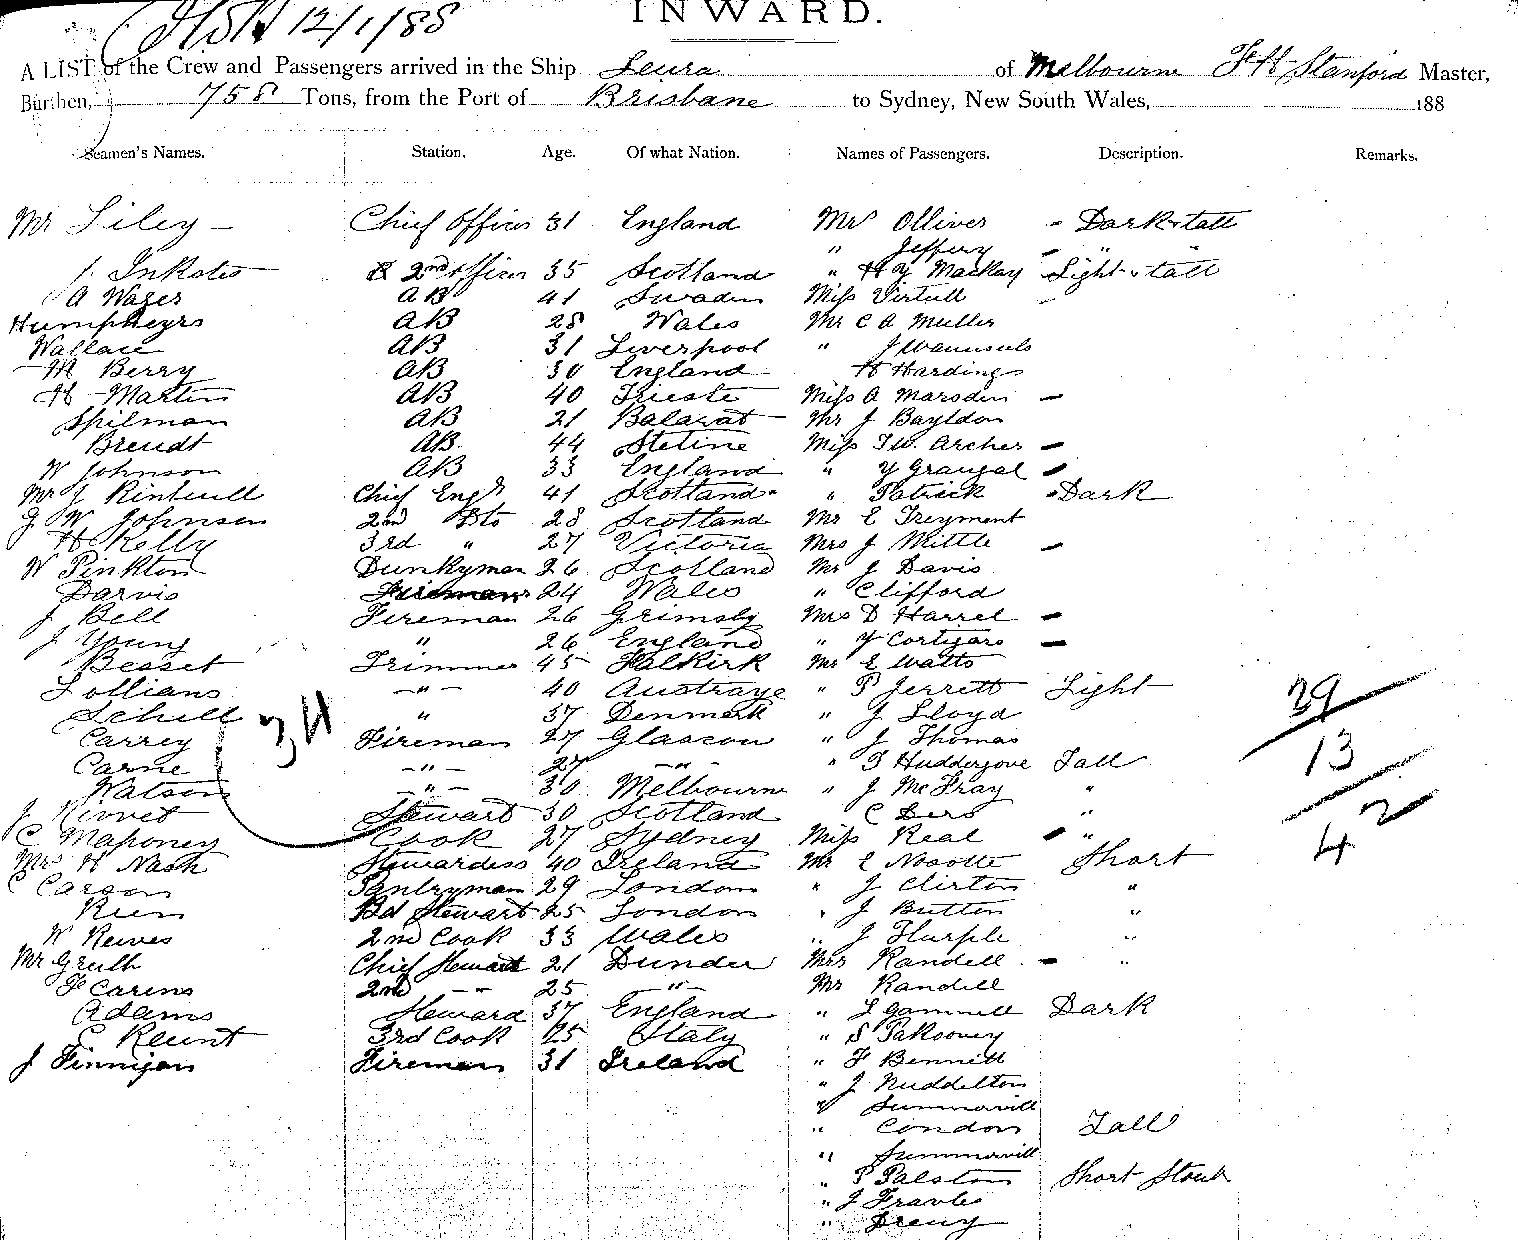 12/1/88
INWARD.
A LIST of the Crew and Passengers arrived in the Ship Leura of Melbourne F H Stanford Master,
Burthen, 758 Tons, from the Port of Brisbane to Sydney, New South Wales, 188
Seamen's Names. Station. Age. Of what Nation. Names of Passengers. Description. Remarks.
Mr Liley - Chief Officer 31 England Mrs Olliver - Dark & tall
" Jeffery - " "
J. Inkster 2nd officer 35 Scotland " H Y Mackay Light & tall
A Wager AB 41 Swaden Miss Virtull -
Humpheyrs AB 28 Wales Mr C A Muller
Wallace AB 31 Liverpool " J
M Berry AB 30 England H Hardings
H Martin AB 40 Trieste Miss A Marsden -
Spilman AB 21 Balarat Mr J Bayldon
Breudt AB 44 Stetine Miss T W. Archer -
W Johnson AB 33 England " Y Graugal -
Mr J Rintoull Chief Engr 41 Scotland " Patrick - Dark
J W Johnson 2nd Dto 28 Scotland Mr E Treyment
H Kelly 3rd " 27 Victoria Mrs J Mittle -
W Pinkton Dunkyman 26 Scotland Mr J Davis
Darvis Fireman 24 Wales " Clifford
J Bell Fireman 26 Grimsby Mrs D Harrel -
J Young " 26 England " Y Cortigars -
Besset Trimmer 45 Falkirk Mr E Watts
Lollians -"- 40 " P Jerrett Light
Schull " 37 Denmark " J Lloyd
39
34
Carrey Fireman 27 Glascow " J Thomas
13
Carne -"- 27 -"- " T Huddergove Tall
Watson -"- 30 Melbourne " J McFray "
42
J Stewart 30 Scotland C Ders "
C Mahoney Cook 27 Sydney Miss Real - "
Mrs H Nash Stewardess 40 Ireland Mr E Nosotte Short
C Carson Pantryman 29 London " J Clirton "
Rien Bd Stewart 25 London " J Button "
W Reeves 2nd Cook 33 Wales " J Thurple "
Mr Greith Chief Stewart 21 Dunder Mrs Randell - "
F Carins 2nd -"- 25 -"- Mr Randell
Adams Steward 37 England " L Gammell Dark
C Reunt 3rd Cook 25 Italy " S Pakooney
J Finnigan Fireman 31 Ireland " F Bennett
" J Nuddelton
" Summorvill
" Condon Tall
" Summorvill
" P Palston Short Stout
" J Fravles
" Dreuy